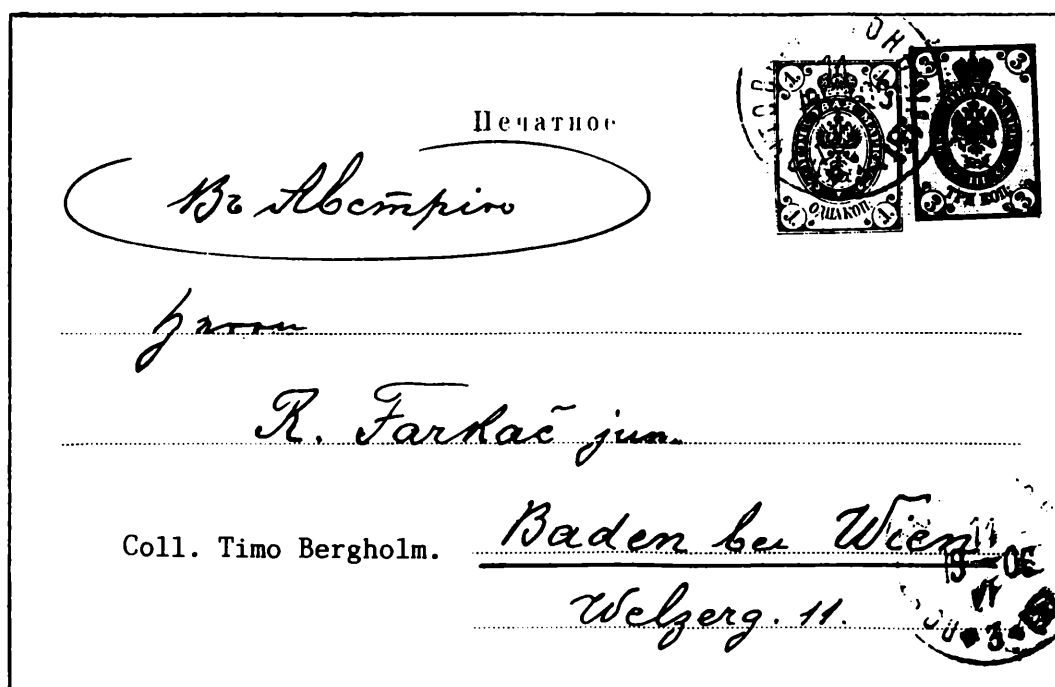 Печатное
Въ Австрію
Herrn
R. Farkač jun.
Coll. Timo Bergholm.
Baden bei Wien
Welzerg. 11.
1. 1.
ОДНА КОП.
1. 1.
3 3
ТРИ КОП.
3 3
11
19 06
VI
3